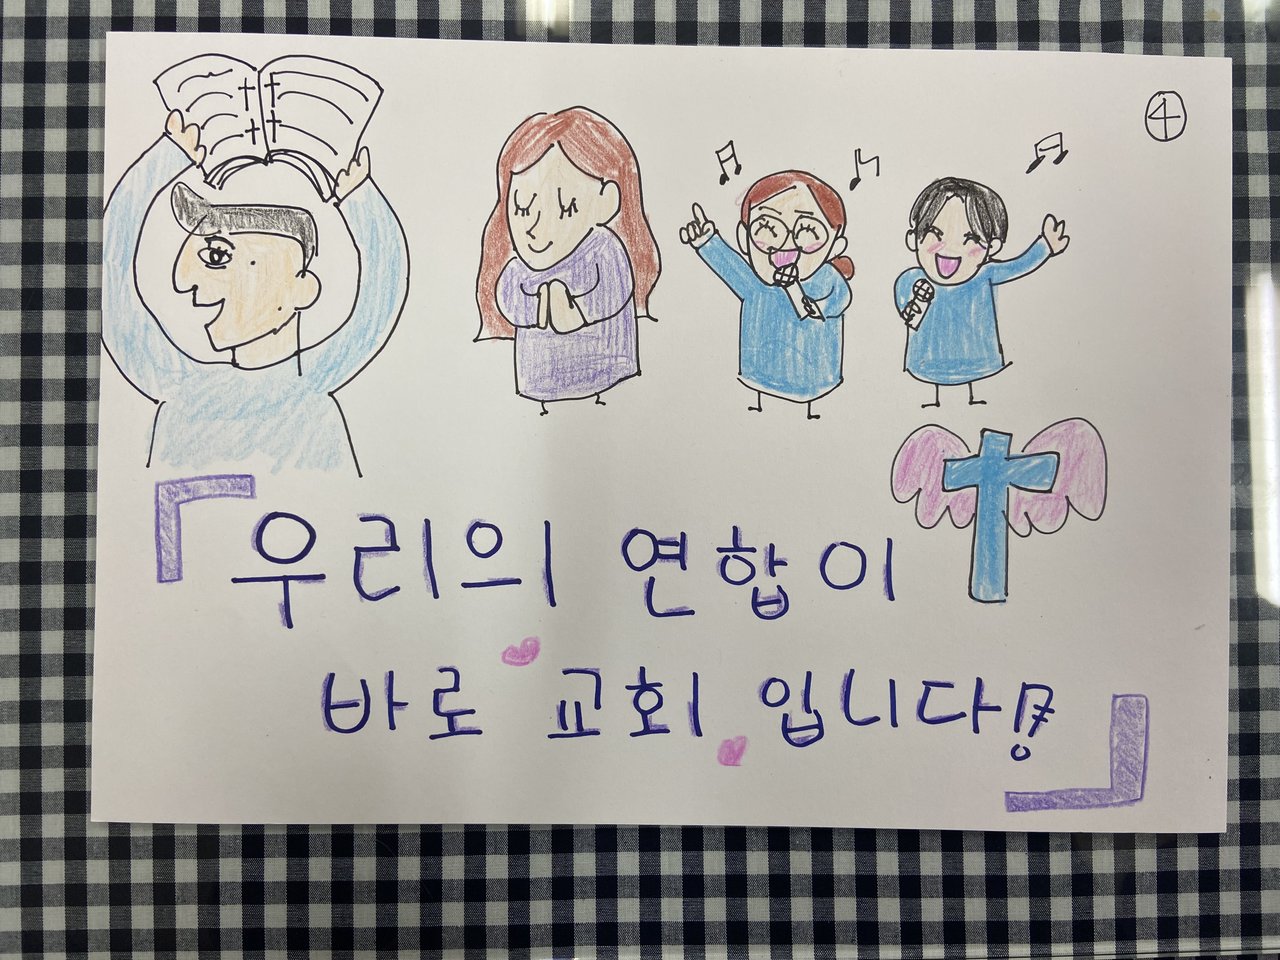 ④
우리의 연합이
바로 교회 입니다!